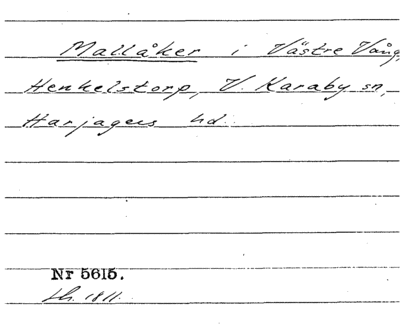 Mallåker i Västre Vång,
Henkelstorp, V. Karaby sn,
Harjagers hd.
Nr 5615.
1811.